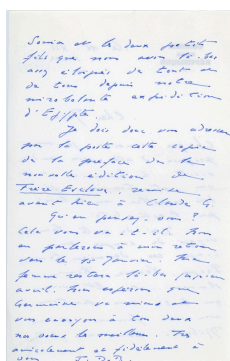 Sonia et les deux petits
fils que nous avons là-bas
assez éloignés de tout et
de tous depuis notre
mirobolante expédition
d'Egypte.
Je dois donc vous adresser
par la poste cette copie
de la préface de la
nouvelle édition de
Frère Esclave, remise
avant hier à Claude G.
Qu'en pensez-vous ?
Cela vous va-t-il. Nous
en parlerons à mon retour
vers le 15 Janvier. Ma
femme restera là-bas jusqu'en
avril. Nous espérons que
Germaine va mieux et
vous envoyons à tous deux
nos voeux les meilleurs. Très
amicalement et fidèlement à
vous